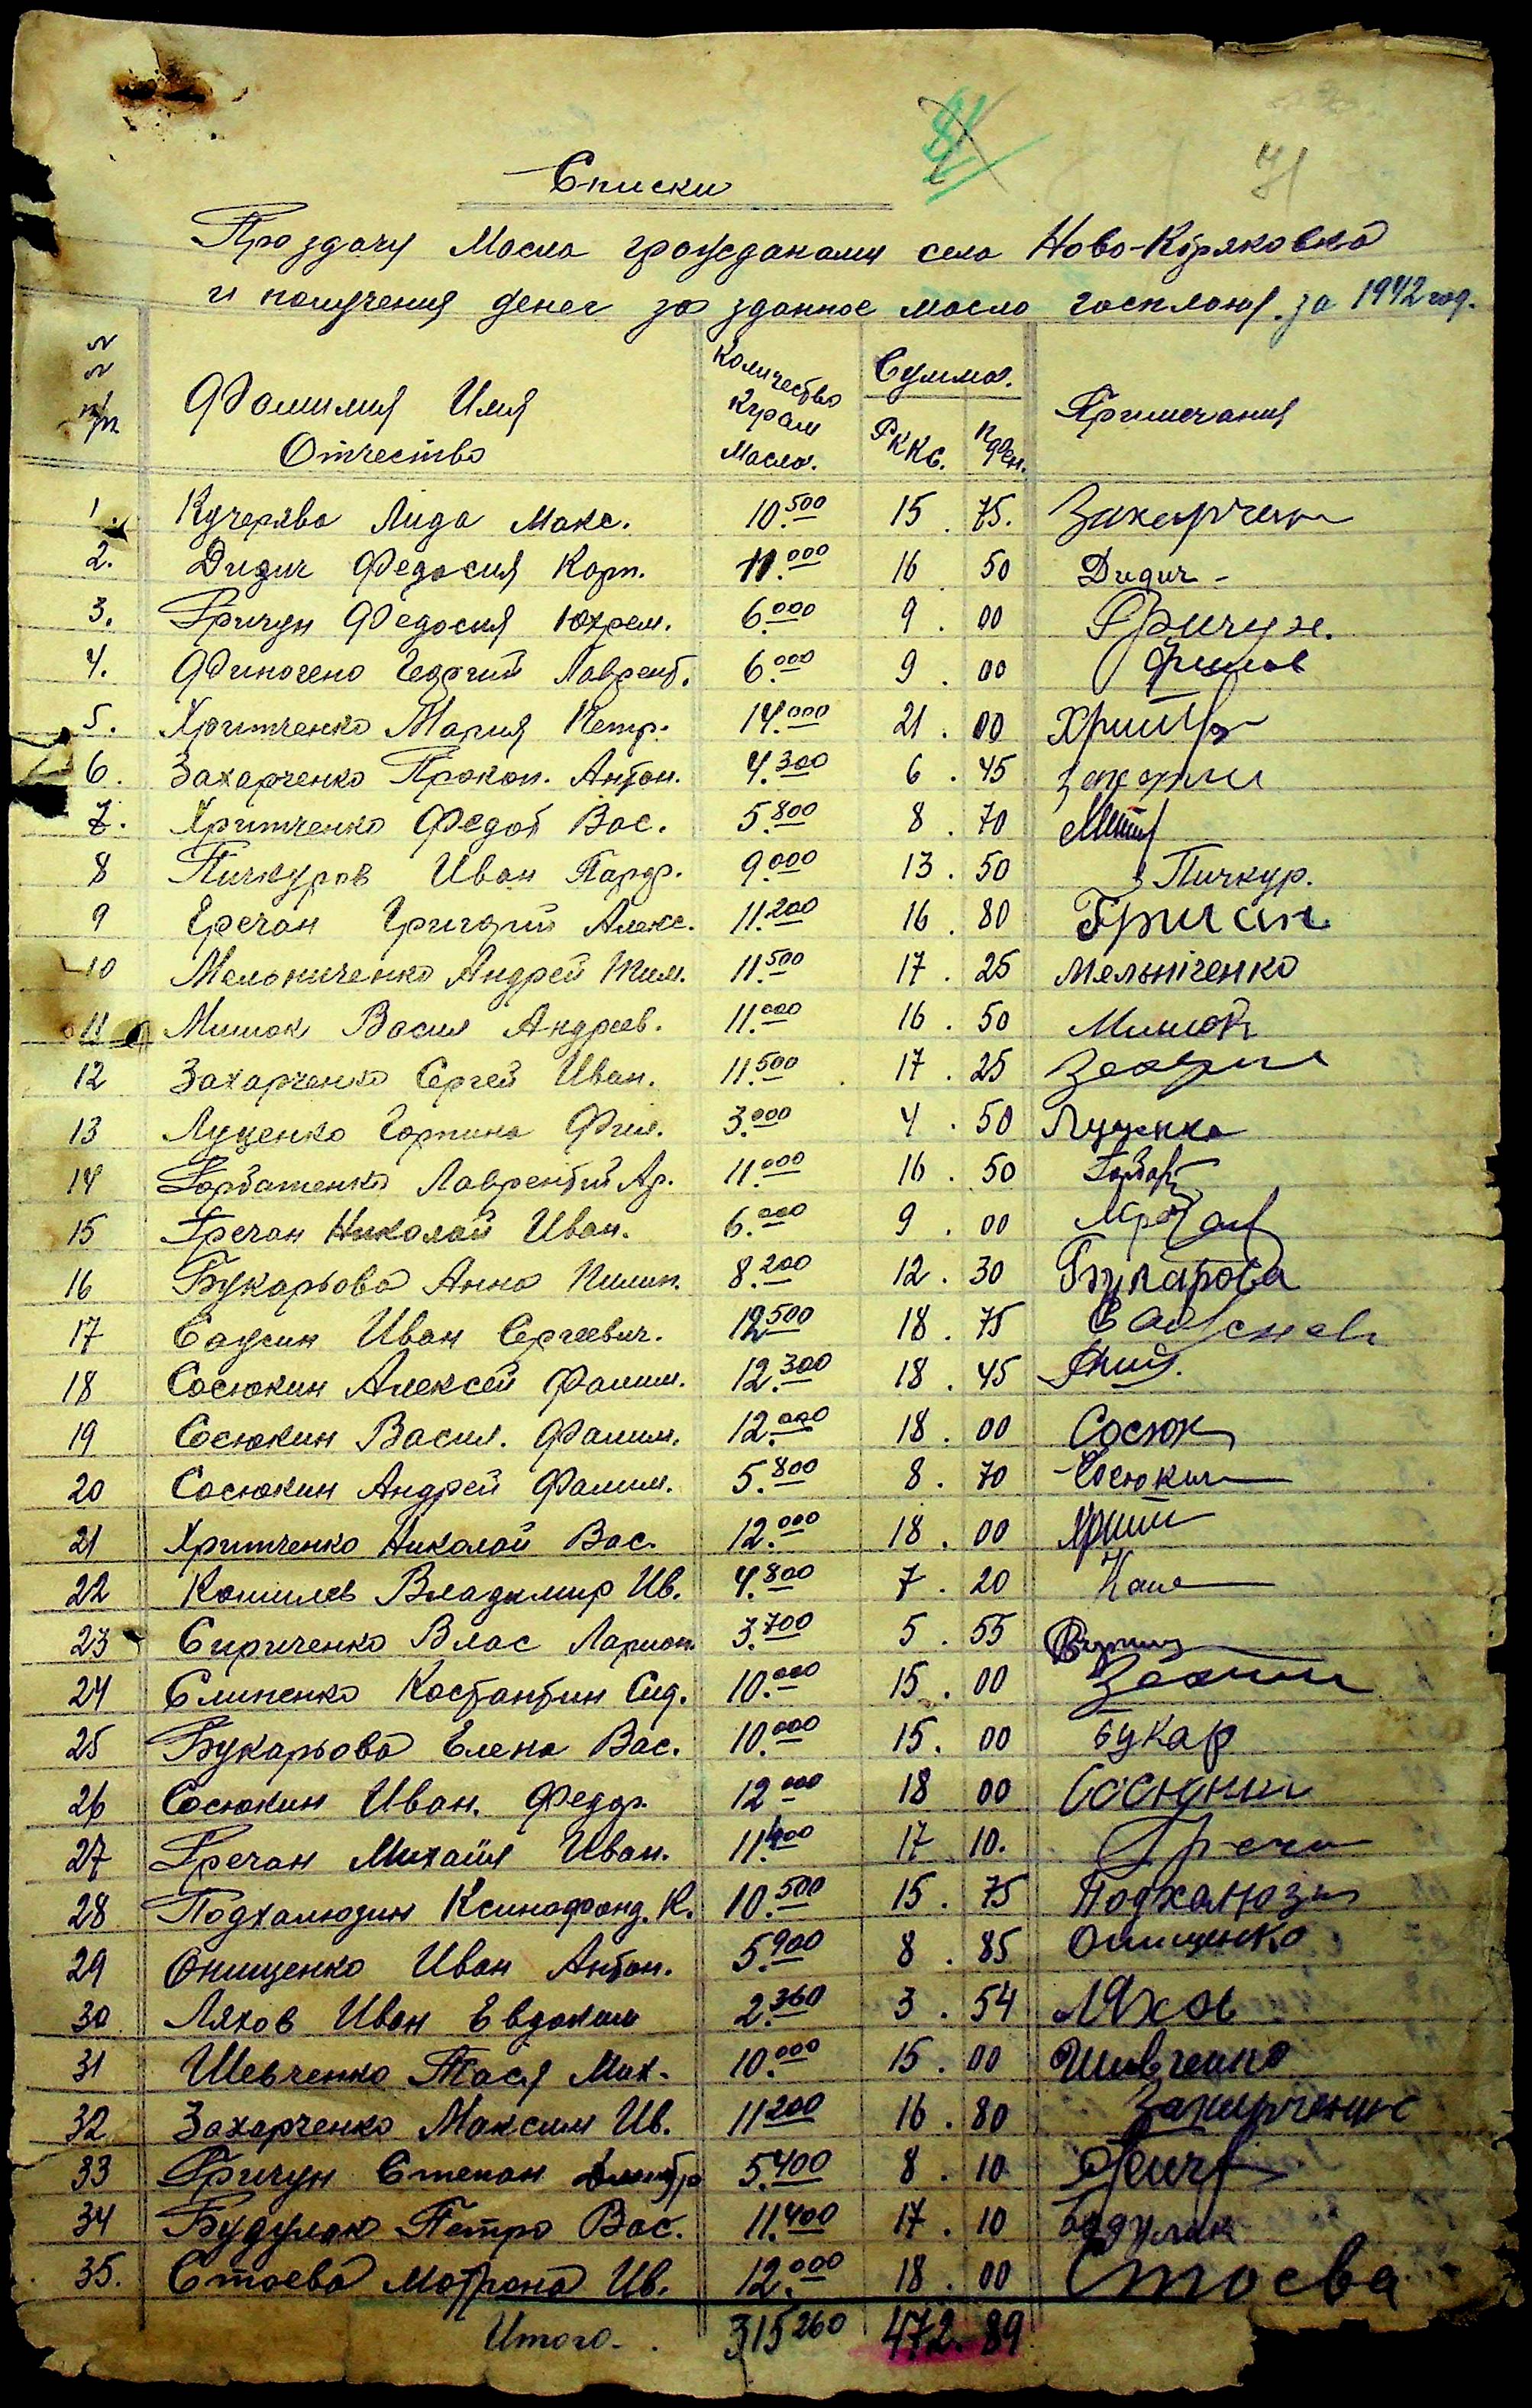 71
Списки
Про здачу Масла гражданами села Ново-Кряковка
и получения денег за зданное масло госплану. за 1942 год.
№ № п/п Фамилия Имя Отчество Количество Кграм Масла. Сумма. РККс. Пфен. Примечания
1. Кучерява Лида Макс. 10.500 15.75. Захарчен
2. Дидич Федосия Карп. 11.000 16 50 Дидич -
3. Гричун Федосия Юхрем. 6.000 9.00 Гричун.
4. Финогено Георгий Лаврент. 6.000 9.00
5. Хритченко Мария Петр. 14.000 21.00
6. Захарченко Прокоп. Антон. 4.300 6.45
7. Хритченко Федот Вас. 5.800 8.70
8 Пичкуров Иван Парф. 9.000 13.50 Пичкур.
9 Гречан Григорий Алекс. 11.200 16.80 Гричан
10 Мельниченко Андрей Тим. 11.500 17.25 Мельніченко
11 Мишок Васил Андреев. 11.000 16.50 Мишок
12 Захарченко Сергей Иван. 11.500 17.25
13 Луценко Горпина Фил. 3.000 4.50 Луценко
14 Горбатенко Лаврентий Ар. 11.000 16.50
15 Гречан Николай Иван. 6.000 9.00
16 Букарьова Анна Пилип. 8.200 12.30 Букарова
17 Саусин Иван Сергеевич. 12.500 18.75
18 Сосюкин Алексей Фамим. 12.300 18.45
19 Сосюкин Васил. Фамим. 12.000 18.00 Сосюк
20 Сосюкин Андрей Фамим. 5.800 8.70 Сосюкин
21 Хритченко Николай Вас. 12.000 18.00
22 Кошилев Владимир Ив. 4.800 7.20 Коше
23 Сириченко Влас Ларион. 3.700 5.55
24 Слипенко Костантин Сид. 10.000 15.00
25 Букарьова Елена Вас. 10.000 15.00 букар
26 Сосюкин Иван. Федор. 12.000 18 00 Сосюкин
27 Гречан Михаил Иван. 11.400 17 10. Гречан
28 Подхалюзин Ксинофонд. К. 10.500 15.75 Подхалюзин
29 Онищенко Иван Антон. 5.900 8.85 Онищенко
30 Ляхов Иван Евдоким 2.360 3.54 Ляхов
31 Шевченко Тася Мих. 10.000 15.00 Шевченко
32 Захарченко Максим Ив. 11200 16.80 Захарченко
33 Гричун Степан Дмитр 5.400 8.10
34 Будулак Петро Вас. 11.400 17.10 Будулак
35. Стоева Мотрона Ив. 12.000 18.00 Стоева
Итого. 315260 472.89